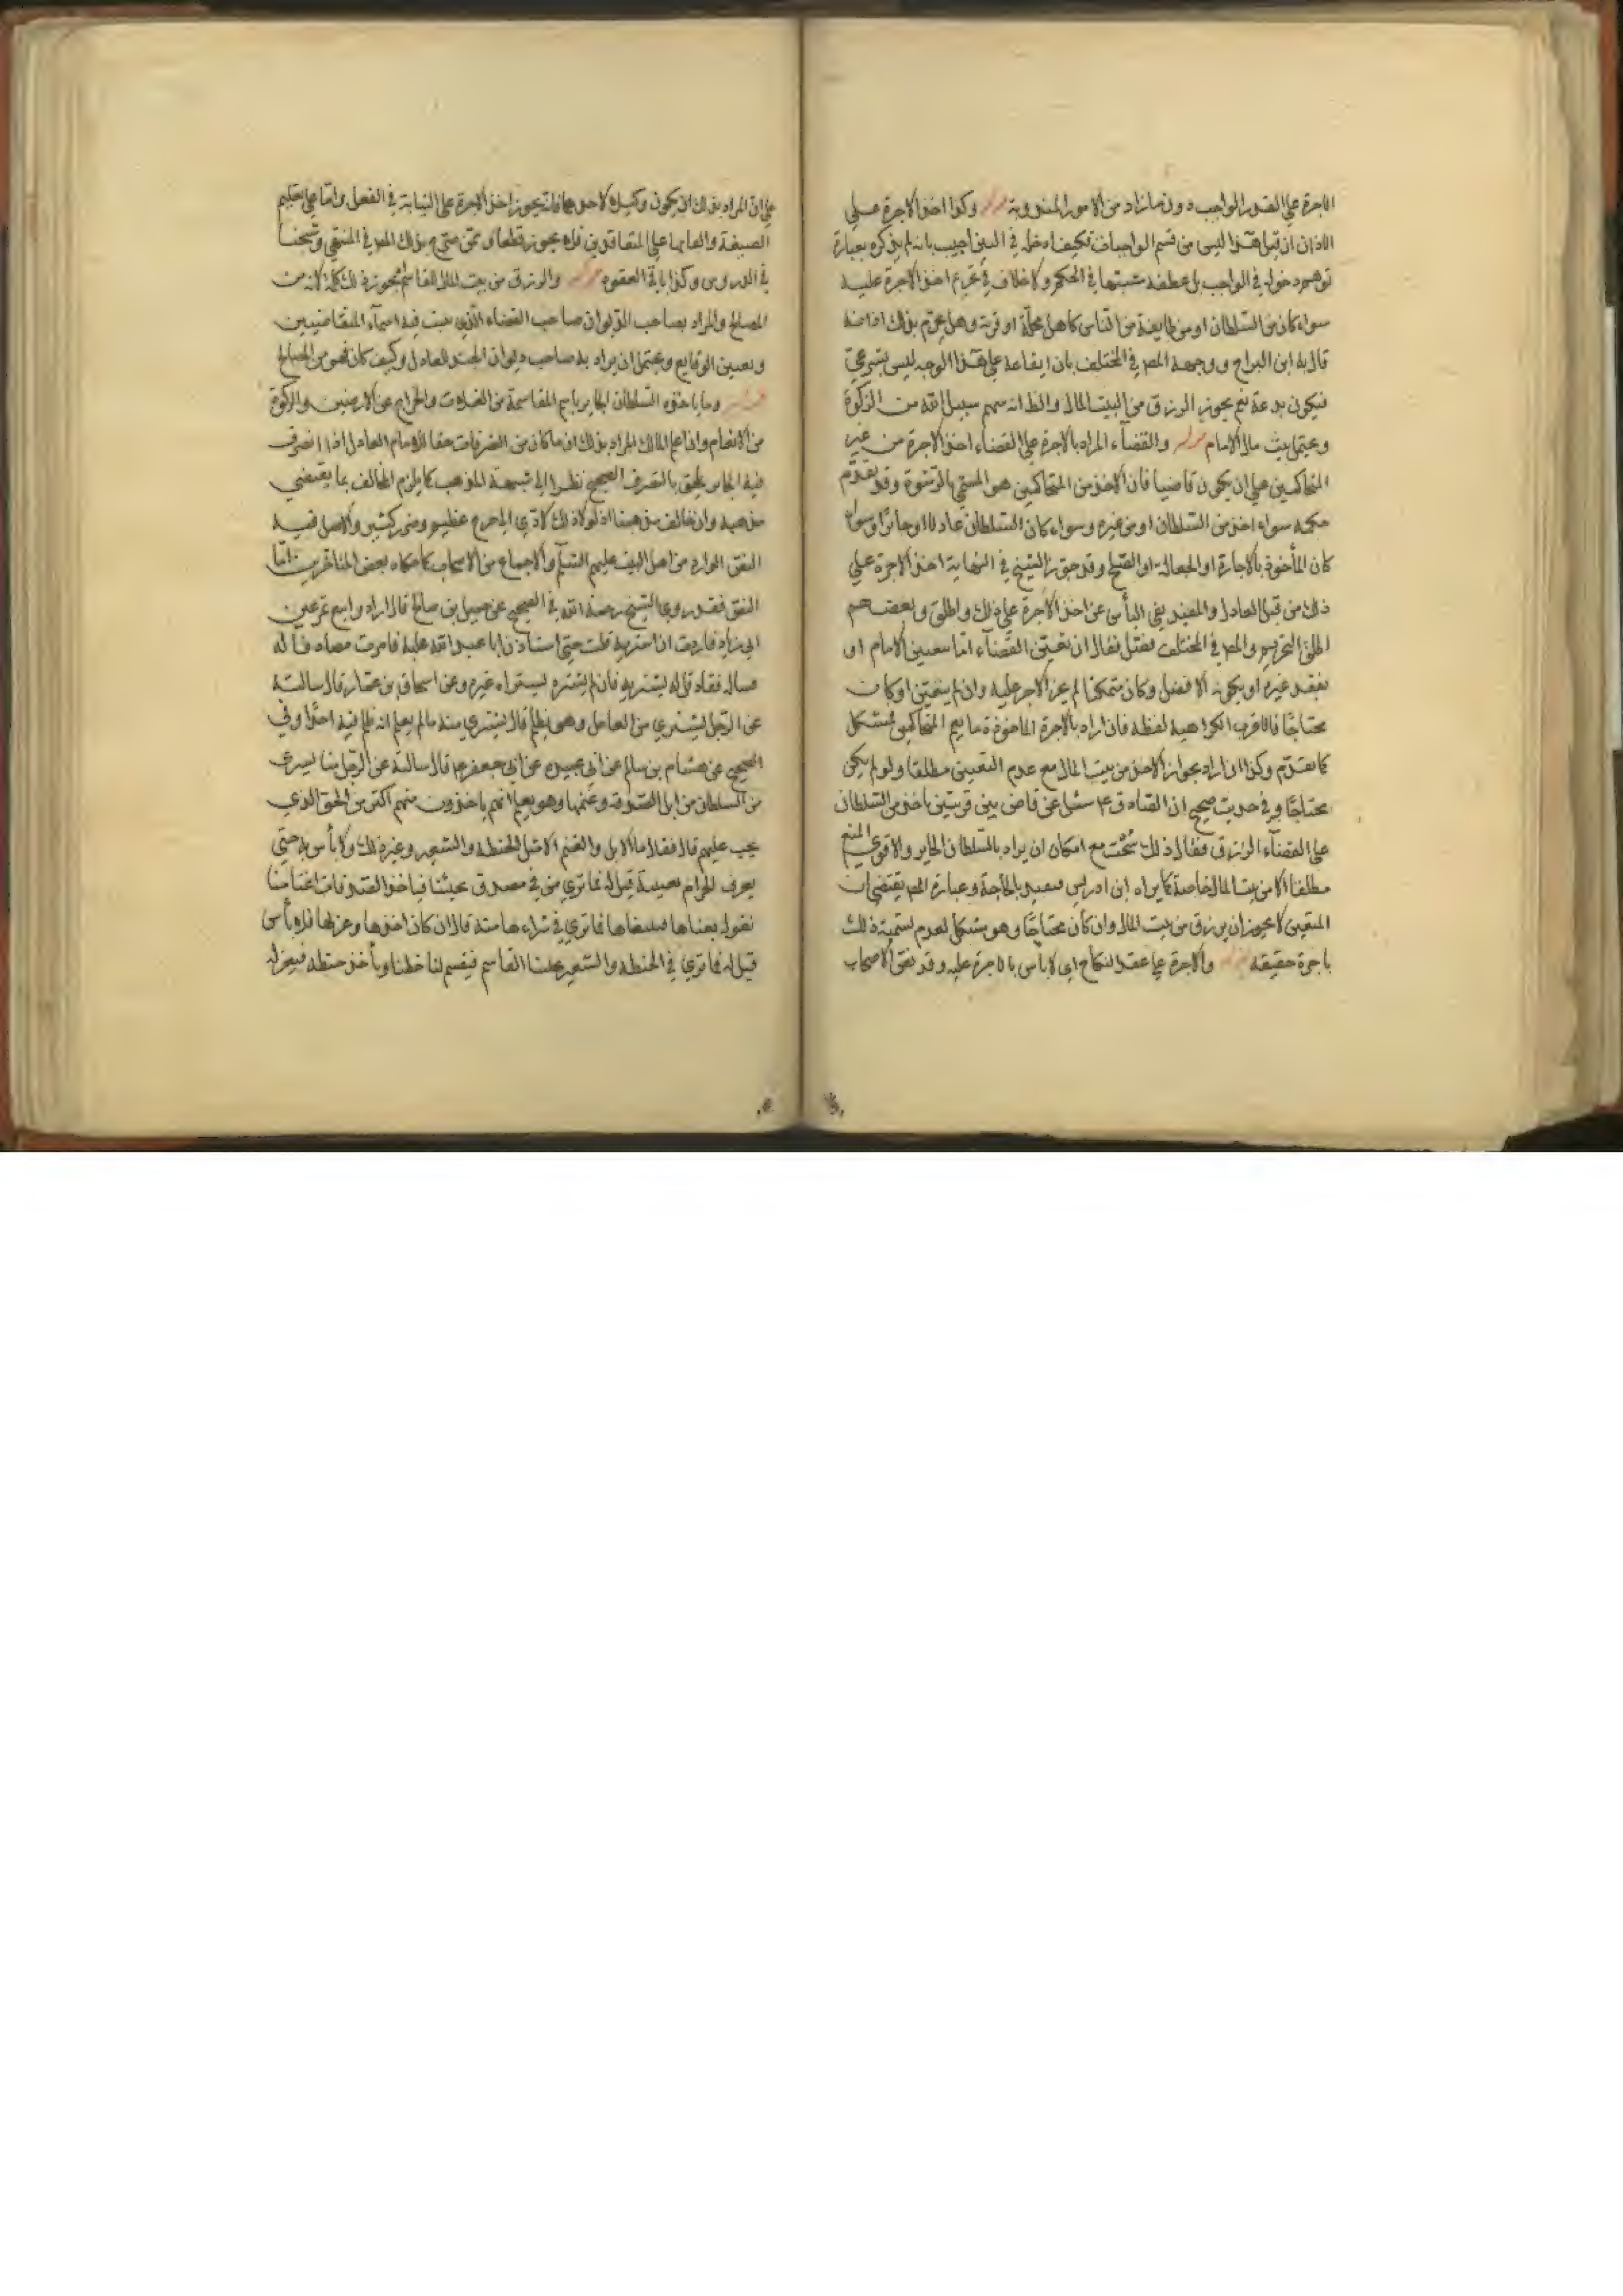 الاجرة علي القدر الواجب دون ما زاد من الامور المندوبة قوله وكذا اخذ الاجرة علي
الاذان ان قيل هذا ليس من قسم الواجبات فكيف ادخله في البين اجيب بانه لم يذكره بعبارة
توهم دخوله في الواجب بل عطفه مشبتها في الحكم ولا خلاف في تحريم اخذ الاجرة عليه
سواء كان من السلطان او من طايفة من الناس كاهل محلة او قرية وهل يحرم بذلك اذانه
قال به ابن البراج ووجهه المص في المختلف بان ايقاعه علي هذا الوجه ليس بشرعي
فيكون بدعة نعم يجوز الرزق من البيت المال والظ انه سهم سبيل الله من الزكوة
وعيتمل بيت مال الامام قوله والقضاء المراد بالاجرة علي القضاء اخذ الاجرة من غير
المتحاكمين علي ان يكون قاضيا فان الاخذ من المتحاكمين هو المسمي بالرشوة وقد تقدم
حكمه سواء اخذ من السلطان او من غيره وسواء كان السلطان عادلا او جائرا وسواء
كان المأخوذ بالاجارة او الجعالة او الصلح وقد جوز الشيخ في النهاية اخذ الاجرة علي
ذلك من قبل العادل والمفيد نفي البأس عن اخذ الاجرة علي ذلك واطلق وبعضهم
اطلق التحريم والمص في المختلف فصل فقال ان تعين القضاء اما بتعيين الامام او
بفقد غيره او بكونه الافضل وكان متمكنا لم يجز الاجر عليه وان لم يتعين او كان
محتاجا فالاقرب الكراهية لفظه فان اراد بالاجرة الماخوذة ما يعم المتحاكمين فمشكل
كما تقدم وكذا ان اراد بجواز الاخذ من بيت المال مع عدم التعيين مطلقا ولو لم يكن
محتاجا وفي حديث صحيح ان الصادق ع سئل عن قاض بين قريتين ياخذ من السلطان
علي القضاء الرزق فقال ذلك سُحْت مع امكان ان يراد بالسلطان الجاير والاقوي المنع
مطلقا الا من بيت المال خاصة كما يراه ابن ادريس مقيد بالحاجة وعبارة المص يقتضي ان
المتعين لا يجوز ان يرزق من بيت المال وان كان محتاجا وهو مشكل لعدم تسمية ذلك
باجرة حقيقة قوله والاجرة علي عقد النكاح اي لا باس بالاجرة عليه وقد نص الاصحاب
علي ان المراد بذلك ان يكون وكيلا لاحدهما فانه يجوز اخذ الاجرة علي النيابة في الفعل واما علي تعليم
الصيغة والقايها علي المتعاقدين فلا يجوز قطعا وممن صرح بذلك المص في المنتهي وشيخنا
في الدروس وكذا باقي العقود قوله والرزق من بيت المال للقاسم يجوز ذلك كله لانه من
المصالح والمراد بصاحب الديوان صاحب القضاء الذي يثبت فيه اسماء المتقاضيين
وتعيين الوقايع ويحتمل ان يراد به صاحب ديوان الجند للعادل وكيف كان فهو من المصالح
قوله وما ياخذه السلطان الجاير باسم المقاسمة من الغلات والخراج عن الارضين والزكوة
من الانعام وان علم المالك المراد بذلك ان ما كان من التصرفات حقا للامام العادل اذا تصرف
فيه الجاير يلحق بالتصرف الصحيح نظرا الي شبهة المذهب كما يلزم المخالف بما يقتضي
مذهبه وان خالف مذهبنا اذ لولا ذلك لادي الي حرج عظيم وضرر كثير والاصل فيه
النص الوارد من اهل البيت عليهم السلم والاجماع من الاصحاب كما حكاه بعض المتاخرين اما
النص فقد روي الشيخ رحمة الله في الصحيح عن جميل بن صالح قال اراد وا بيع تمر عين
ابي زياد فاردت ان اشتريه قلت حتي استاذن ابا عبد الله عليه فامرت مصادفا له
فساله فقاد قل له يشتريه فان لم يشتره يستراه غيره وعن اسحاق بن عمار قال سالته
عن الرجل يشتري من العامل وهو يظلم قال يشتري منه ما لم يعلم انه ظلم فيه احدا وفي
الصحيح عن هشام بن سالم عن ابي عبيده عن ابي جعفر ع قال سالته عن الرجل منا يشري
من السلطان من ابل الصدقة وغنمها وهو يعلم انهم ياخذون منهم اكثر من الحق الذي
يجب عليهم قال فقال ما الابل والغنم الا مثل الحنطة والشعير وغير ذلك ولا بأس به حتي
يعرف الحرام بعينه قيل له فما تري من في مصدق يجيئنا فياخذ الصدقات اغنامنا
نقول بعناها فيبيعناها فما تري في شراءها منه قال ان كان اخذها وعزلها فلا بأس
قيل له فما تري في الحنطة والشعير يجئنا القاسم فيقسم لنا حظنا ويأخذ حنطه فيعزله